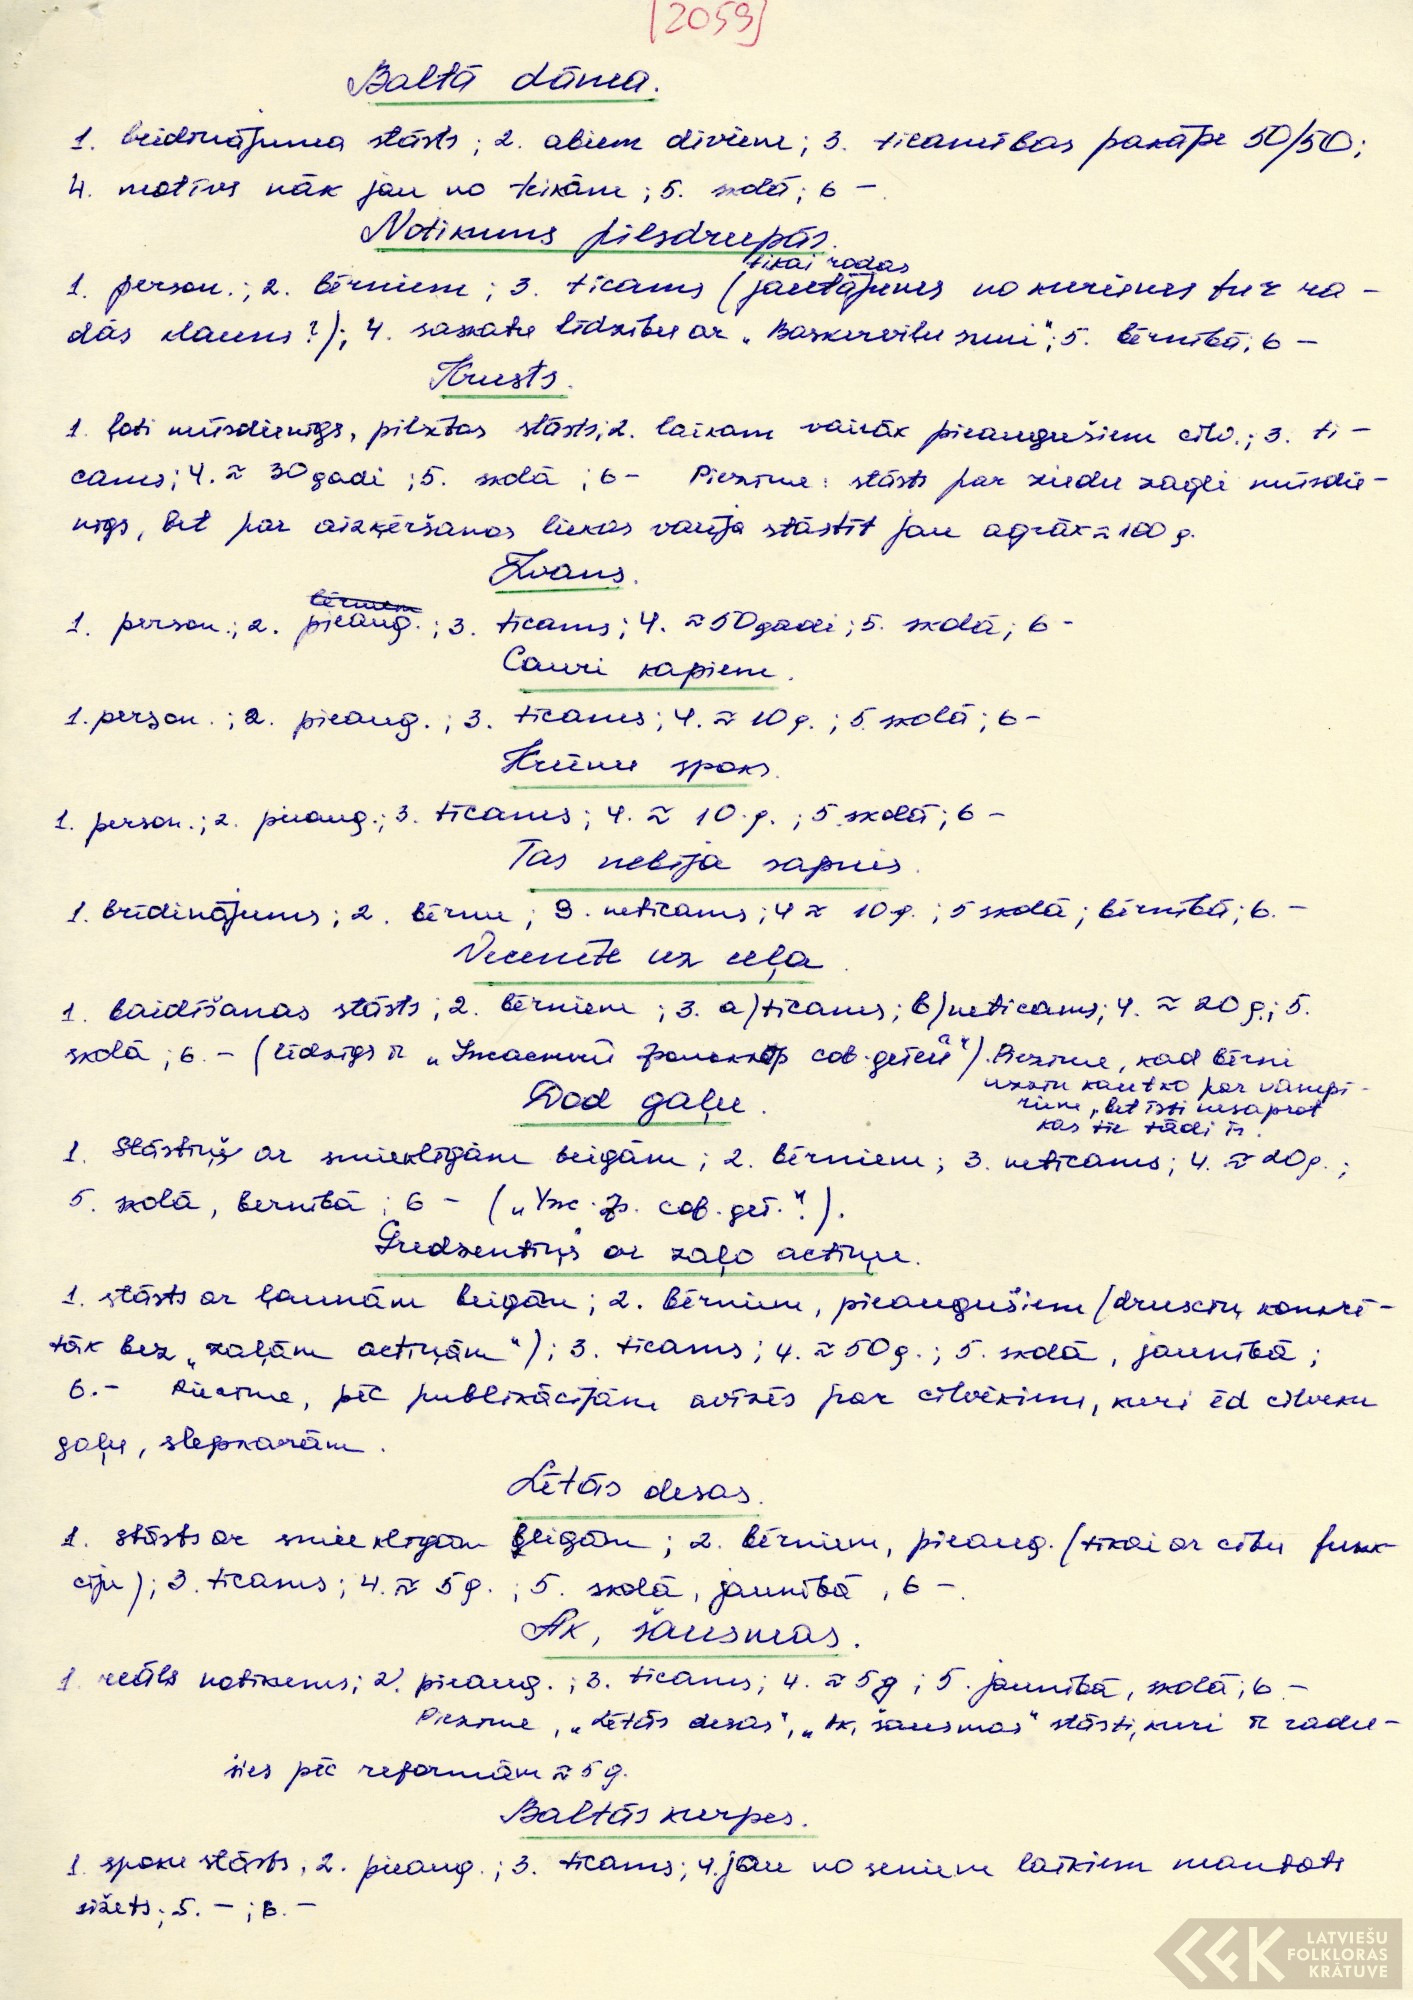 [2059]
Baltā dāma.
1. brīdinājuma stāsts; 2. abiem diviem; 3. ticamības pakāpe 50/50;
4. motīvs nāk jau no teikām; 5. skolā; 6 –
Notikums pilsdrupās.
tikai rodas
1. person.; 2. bērniem; 3. ticams (jautājums no kurienes tur ra-
dās klauns?); 4. saskatu līdzību ar „Baskervilu suni"; 5. bērnībā; 6 –
Krusts.
1. ļoti mūsdienīgs, pilsētas stāsts; 2. laikam vairāk pieaugušiem cilv.; 3. ti-
cams; 4. ≈ 30 gadi; 5. skolā; 6 – Piezīme: stāsts par ziedu zagli mūsdie-
nīgs, bet par aizķeršanos liekas varēja stāstīt jau agrāk ≈ 100 g.
Zvans.
bērniem
1. person.; 2. pieaug.; 3. ticams; 4. ≈ 50 gadi; 5. skolā; 6 –
Cauri kapiem.
1. person.; 2. pieaug.; 3. ticams; 4. ≈ 10 g.; 5. skolā; 6 –
Krūmu spoks.
1. person.; 2. pieaug.; 3. ticams; 4. ≈ 10. g.; 5. skolā; 6 –
Tas nebija sapnis.
1. brīdinājums; 2. bērnu; 3. neticams; 4 ≈ 10 g.; 5 skolā; bērnībā; 6. –
Vecenīte uz ceļa.
1. baidīšanas stāsts; 2. bērniem; 3. a) ticams; b) neticams; 4. ≈ 20 g.; 5.
skolā; 6. – (līdzīgs ir „Ужасный фольклор сов. детей"). Piezīme, kad bērni
uzzin kautko par vampī-
riem, bet īsti nesaprot
kas tie tādi ir.
Dod gaļu.
1. Stāstiņš ar smieklīgām beigām; 2. bērniem; 3. neticams; 4. ≈ 20 g.;
5. skolā, bernībā; 6 – („Уж. ф. сов. дет."!).
Gredzentiņš ar zaļo actiņu.
1. stāsts ar ļaunām beigām; 2. bērniem, pieaugušiem (drusciņ konkrē-
tāk bez „zaļām actiņām"); 3. ticams; 4. ≈ 50 g.; 5. skolā, jaunībā;
6. – Piezīme, pēc publikācijām avīzēs par cilvēkiem, kuri ēd cilvēku
gaļu, slepkavām.
Lētās desas.
1. stāsts ar smieklīgām beigām; 2. bērniem, pieaug. (tikai ar citu funk
ciju); 3. ticams; 4. ≈ 5 g.; 5. skolā, jaunībā, 6 –.
Ak, šausmas.
1. reāls notikums; 2. pieaug.; 3. ticams; 4. ≈ 5 g; 5. jaunībā, skolā; 6 –
Piezīme, „Lētās desas", „Ak, šausmas" stāsti, kuri ir radu-
šies pēc reformām ≈ 5 g.
Baltās kurpes.
1. spoku stāsts; 2. pieaug.; 3. ticams; 4. jau no seniem laikiem mantots
sižets; 5. – ; 6. –
LATVIEŠU
FOLKLORAS
KRĀTUVE